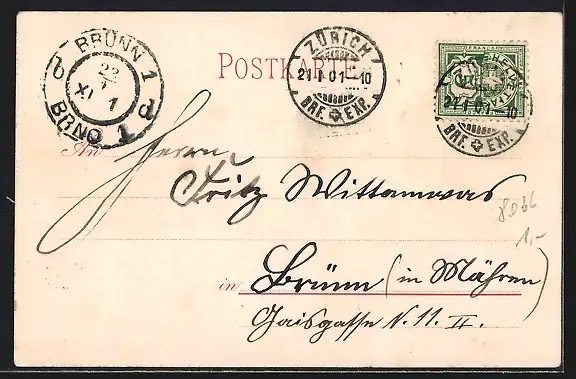 BRÜNN 1
BRNO 1
22
XI 1
POSTKARTE
ZÜRICH
21.I.01.-10
BRF. EXP.
FRANCO
HELVETIA
21.I.01.-10
BRF. EXP.
An Herrn
Fritz Wittamwas
8066
1,-
in Brünn (in Mähren)
Gaisgasse N. 11. II.